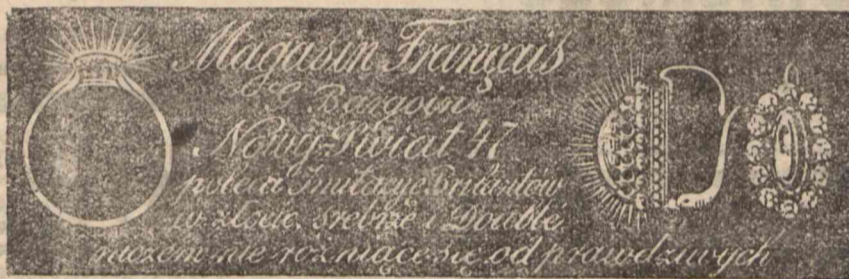 Magasin Français
Bargoin
Nowy-Świat 47
poleca Imitacye Brilantów
w złocie, srebrze i Double
niczem nie różniące się od prawdziwych